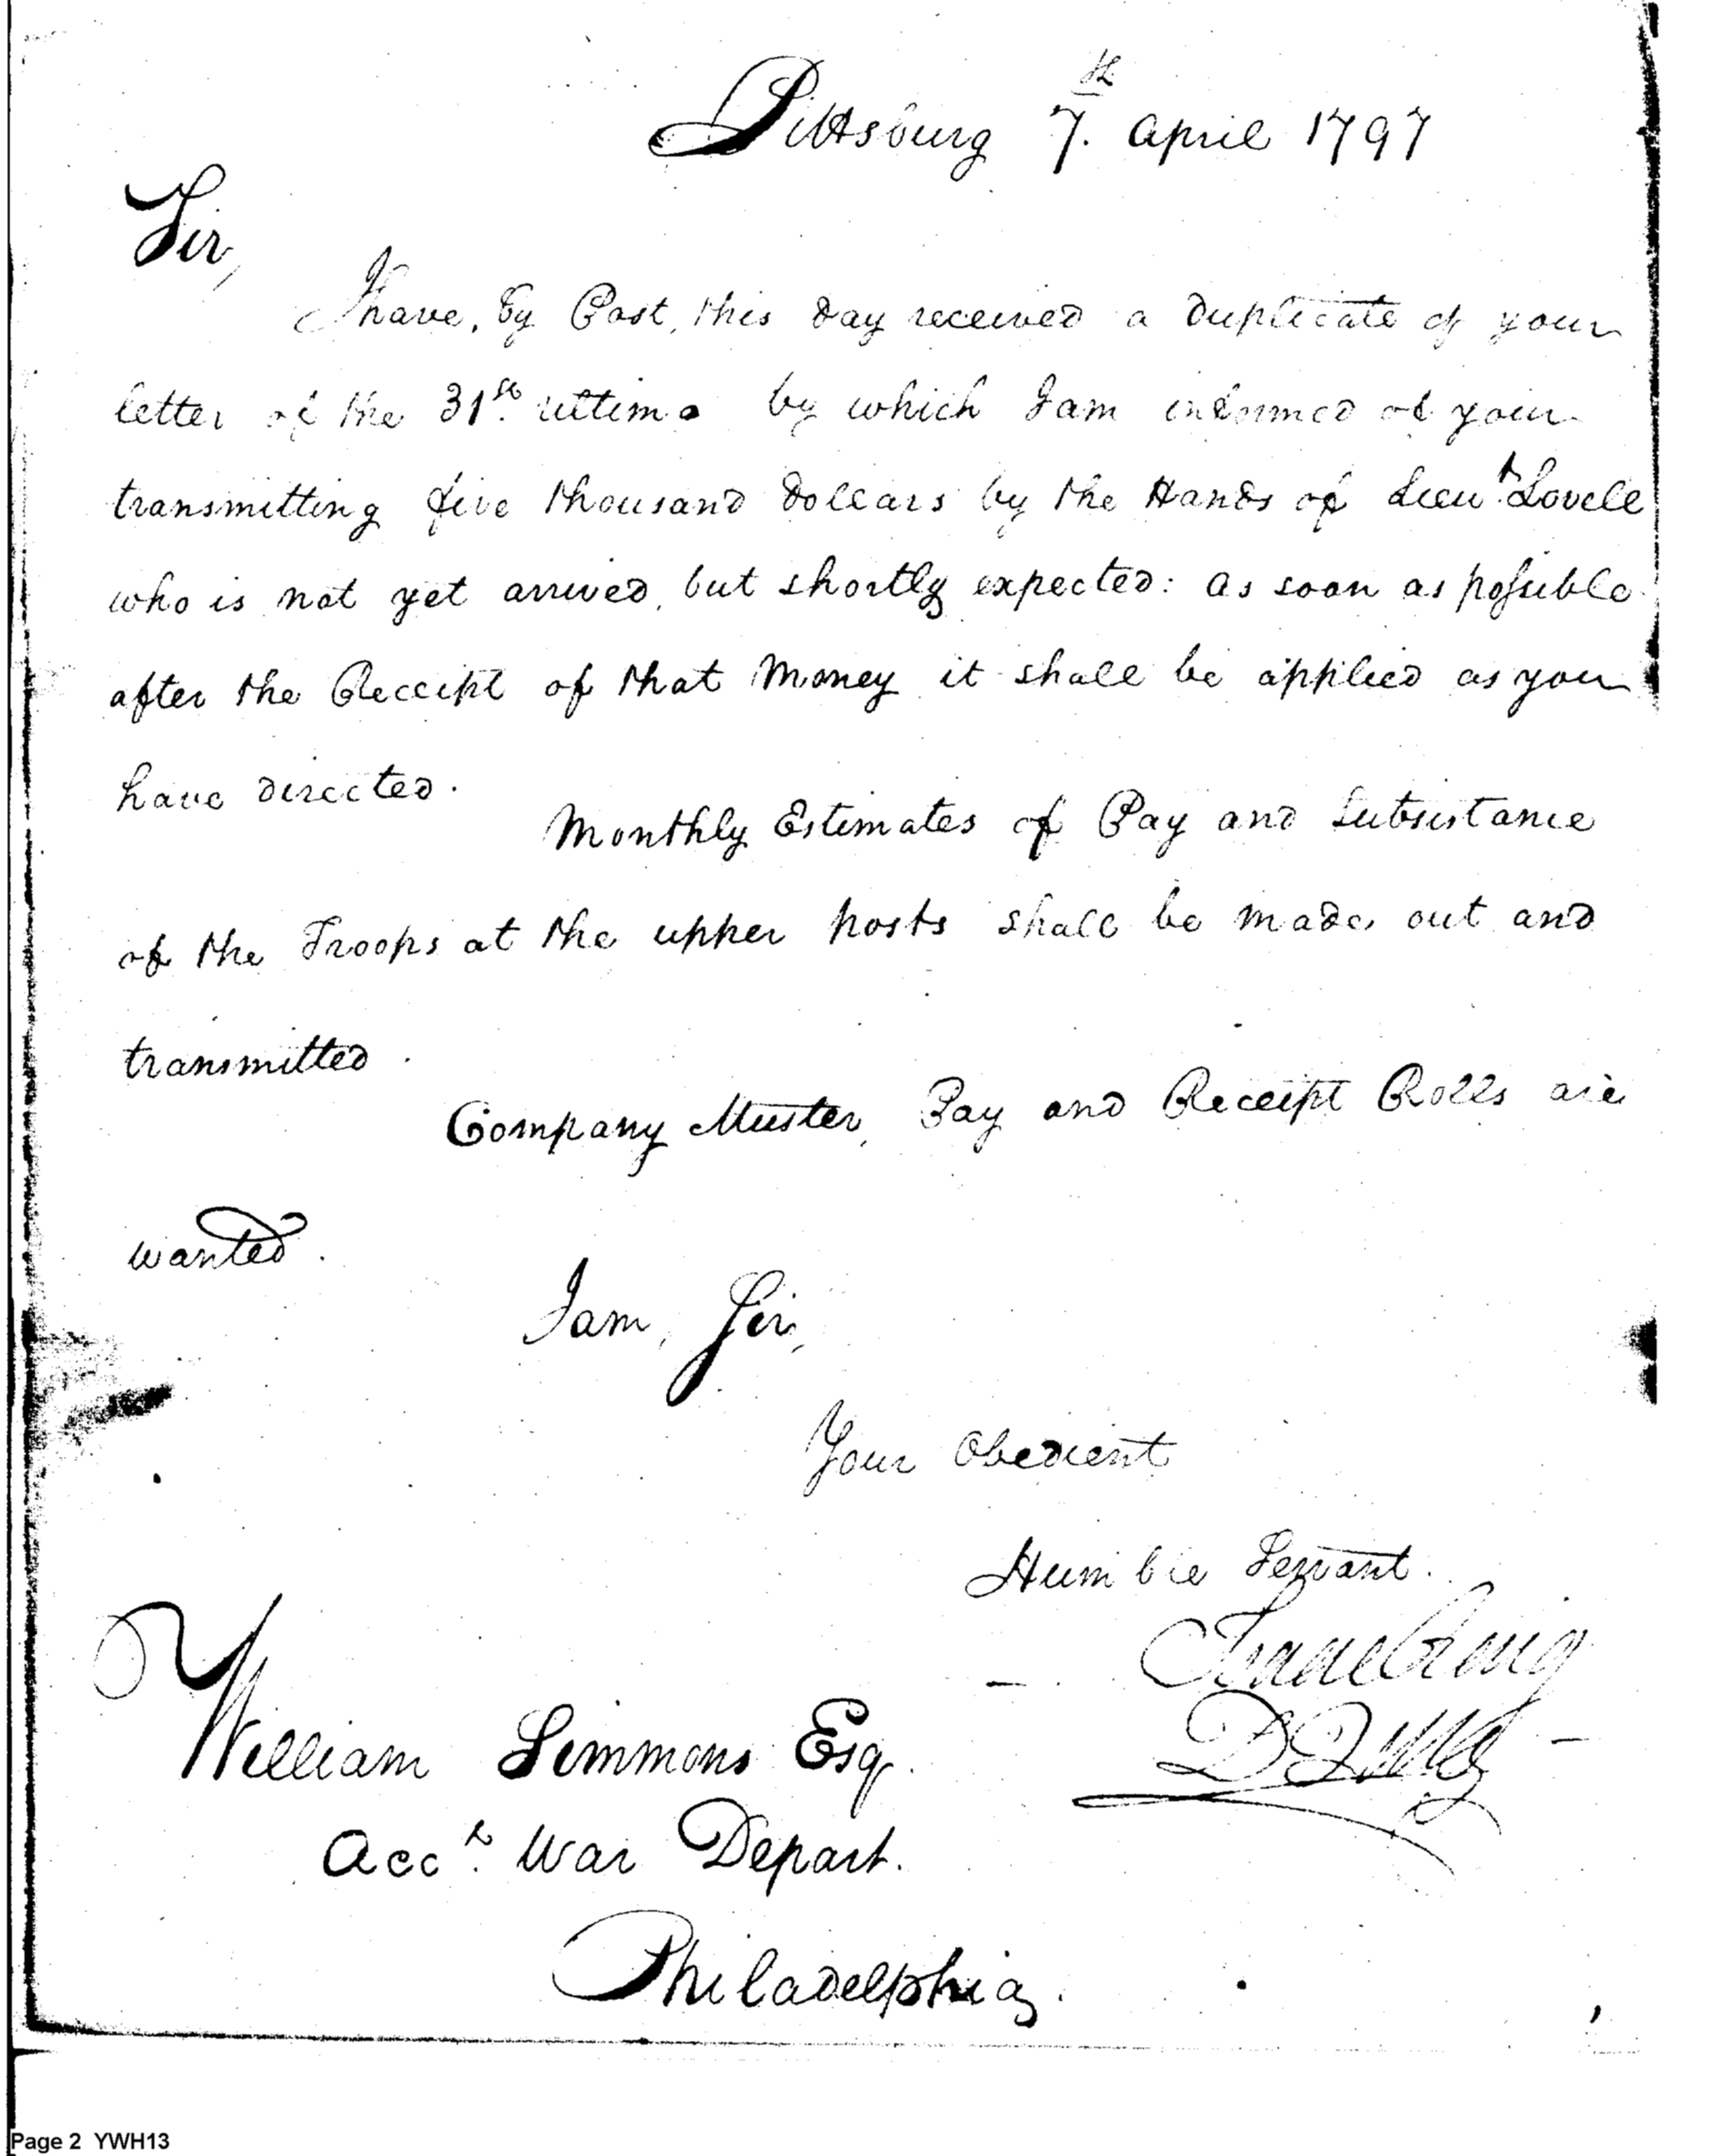 Pittsburg 7.th April 1797
Sir,
I have, by Post, this day received a duplicate of your
letter of the 31st. ultimo by which I am informed of your
transmitting five thousand Dollars by the Hands of Lieut. Lovell
who is not yet arrived, but shortly expected: as soon as possible
after the Receipt of that Money it shall be applied as you
have directed.
Monthly Estimates of Pay and Subsistance
of the Troops at the upper posts shall be made out and
transmitted.
Company Muster, Pay and Receipt Rolls are
wanted.
I am, Sir,
Your Obedient
Humble Servant.
Isaac Craig
William Simmons Esq.
Acct. War Depart.
Philadelphia.
Page 2 YWH13